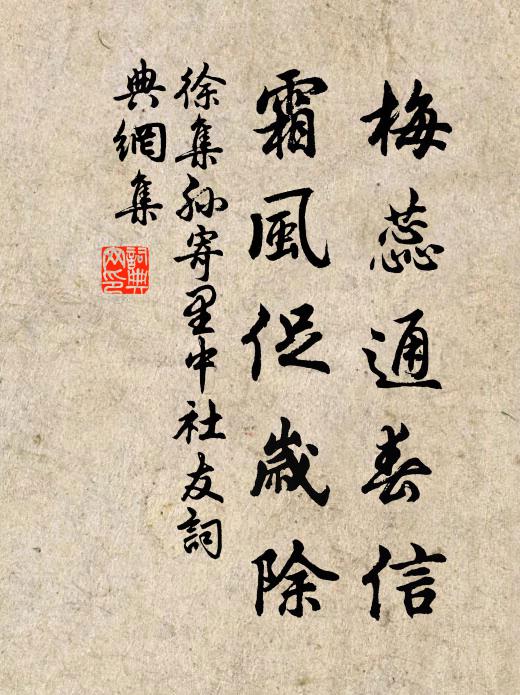 梅蕊通春信
霜風促歲除
徐集孙寄里中社友詞
典網集
詞典
文印